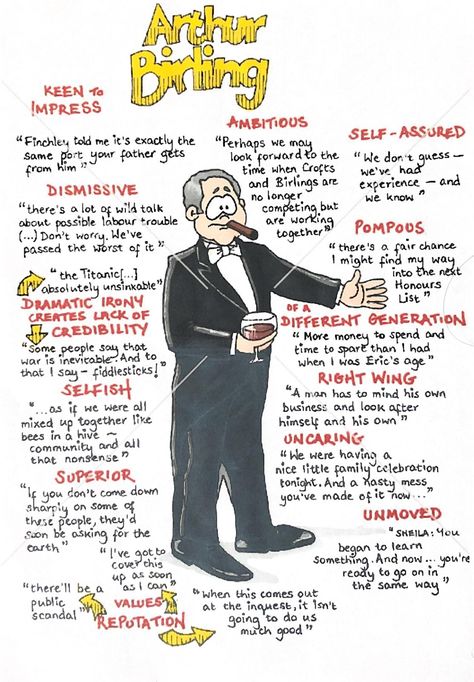 Arthur
Birling
KEEN TO
IMPRESS
"Finchley told me it's exactly the
same port your father gets
from him"
AMBITIOUS
"Perhaps we may
look forward to the
time when Crofts
and Birlings are
no longer
competing but
are working
together"
SELF-ASSURED
"We don't guess –
we've had
experience – and
we know"
DISMISSIVE
"there's a lot of wild talk
about possible labour trouble
(...) Don't worry. We've
passed the worst of it"
POMPOUS
"there's a fair chance
I might find my way
into the next
Honours
List"
"the Titanic [...]
absolutely unsinkable"
DRAMATIC IRONY
CREATES LACK OF
CREDIBILITY
"Some people say that
war is inevitable. And to
that I say – fiddlesticks!"
OF A
DIFFERENT GENERATION
"More money to spend and
time to spare than I had
when I was Eric's age"
SELFISH
"...as if we were all
mixed up together like
bees in a hive –
community and all
that nonsense"
RIGHT WING
"A man has to mind his own
business and look after
himself and his own"
UNCARING
"We were having a
nice little family celebration
tonight. And a nasty mess
you've made of it now..."
SUPERIOR
"If you don't come down
sharply on some of
these people, they'd
soon be asking for the
earth"
UNMOVED
"SHEILA: You
began to learn
something. And now... you're
ready to go on in
the same way"
"I've got to
cover this
up as soon
as I can"
"there'll be a
public
scandal"
VALUES
REPUTATION
"When this comes out
at the inquest, it isn't
going to do us
much good"